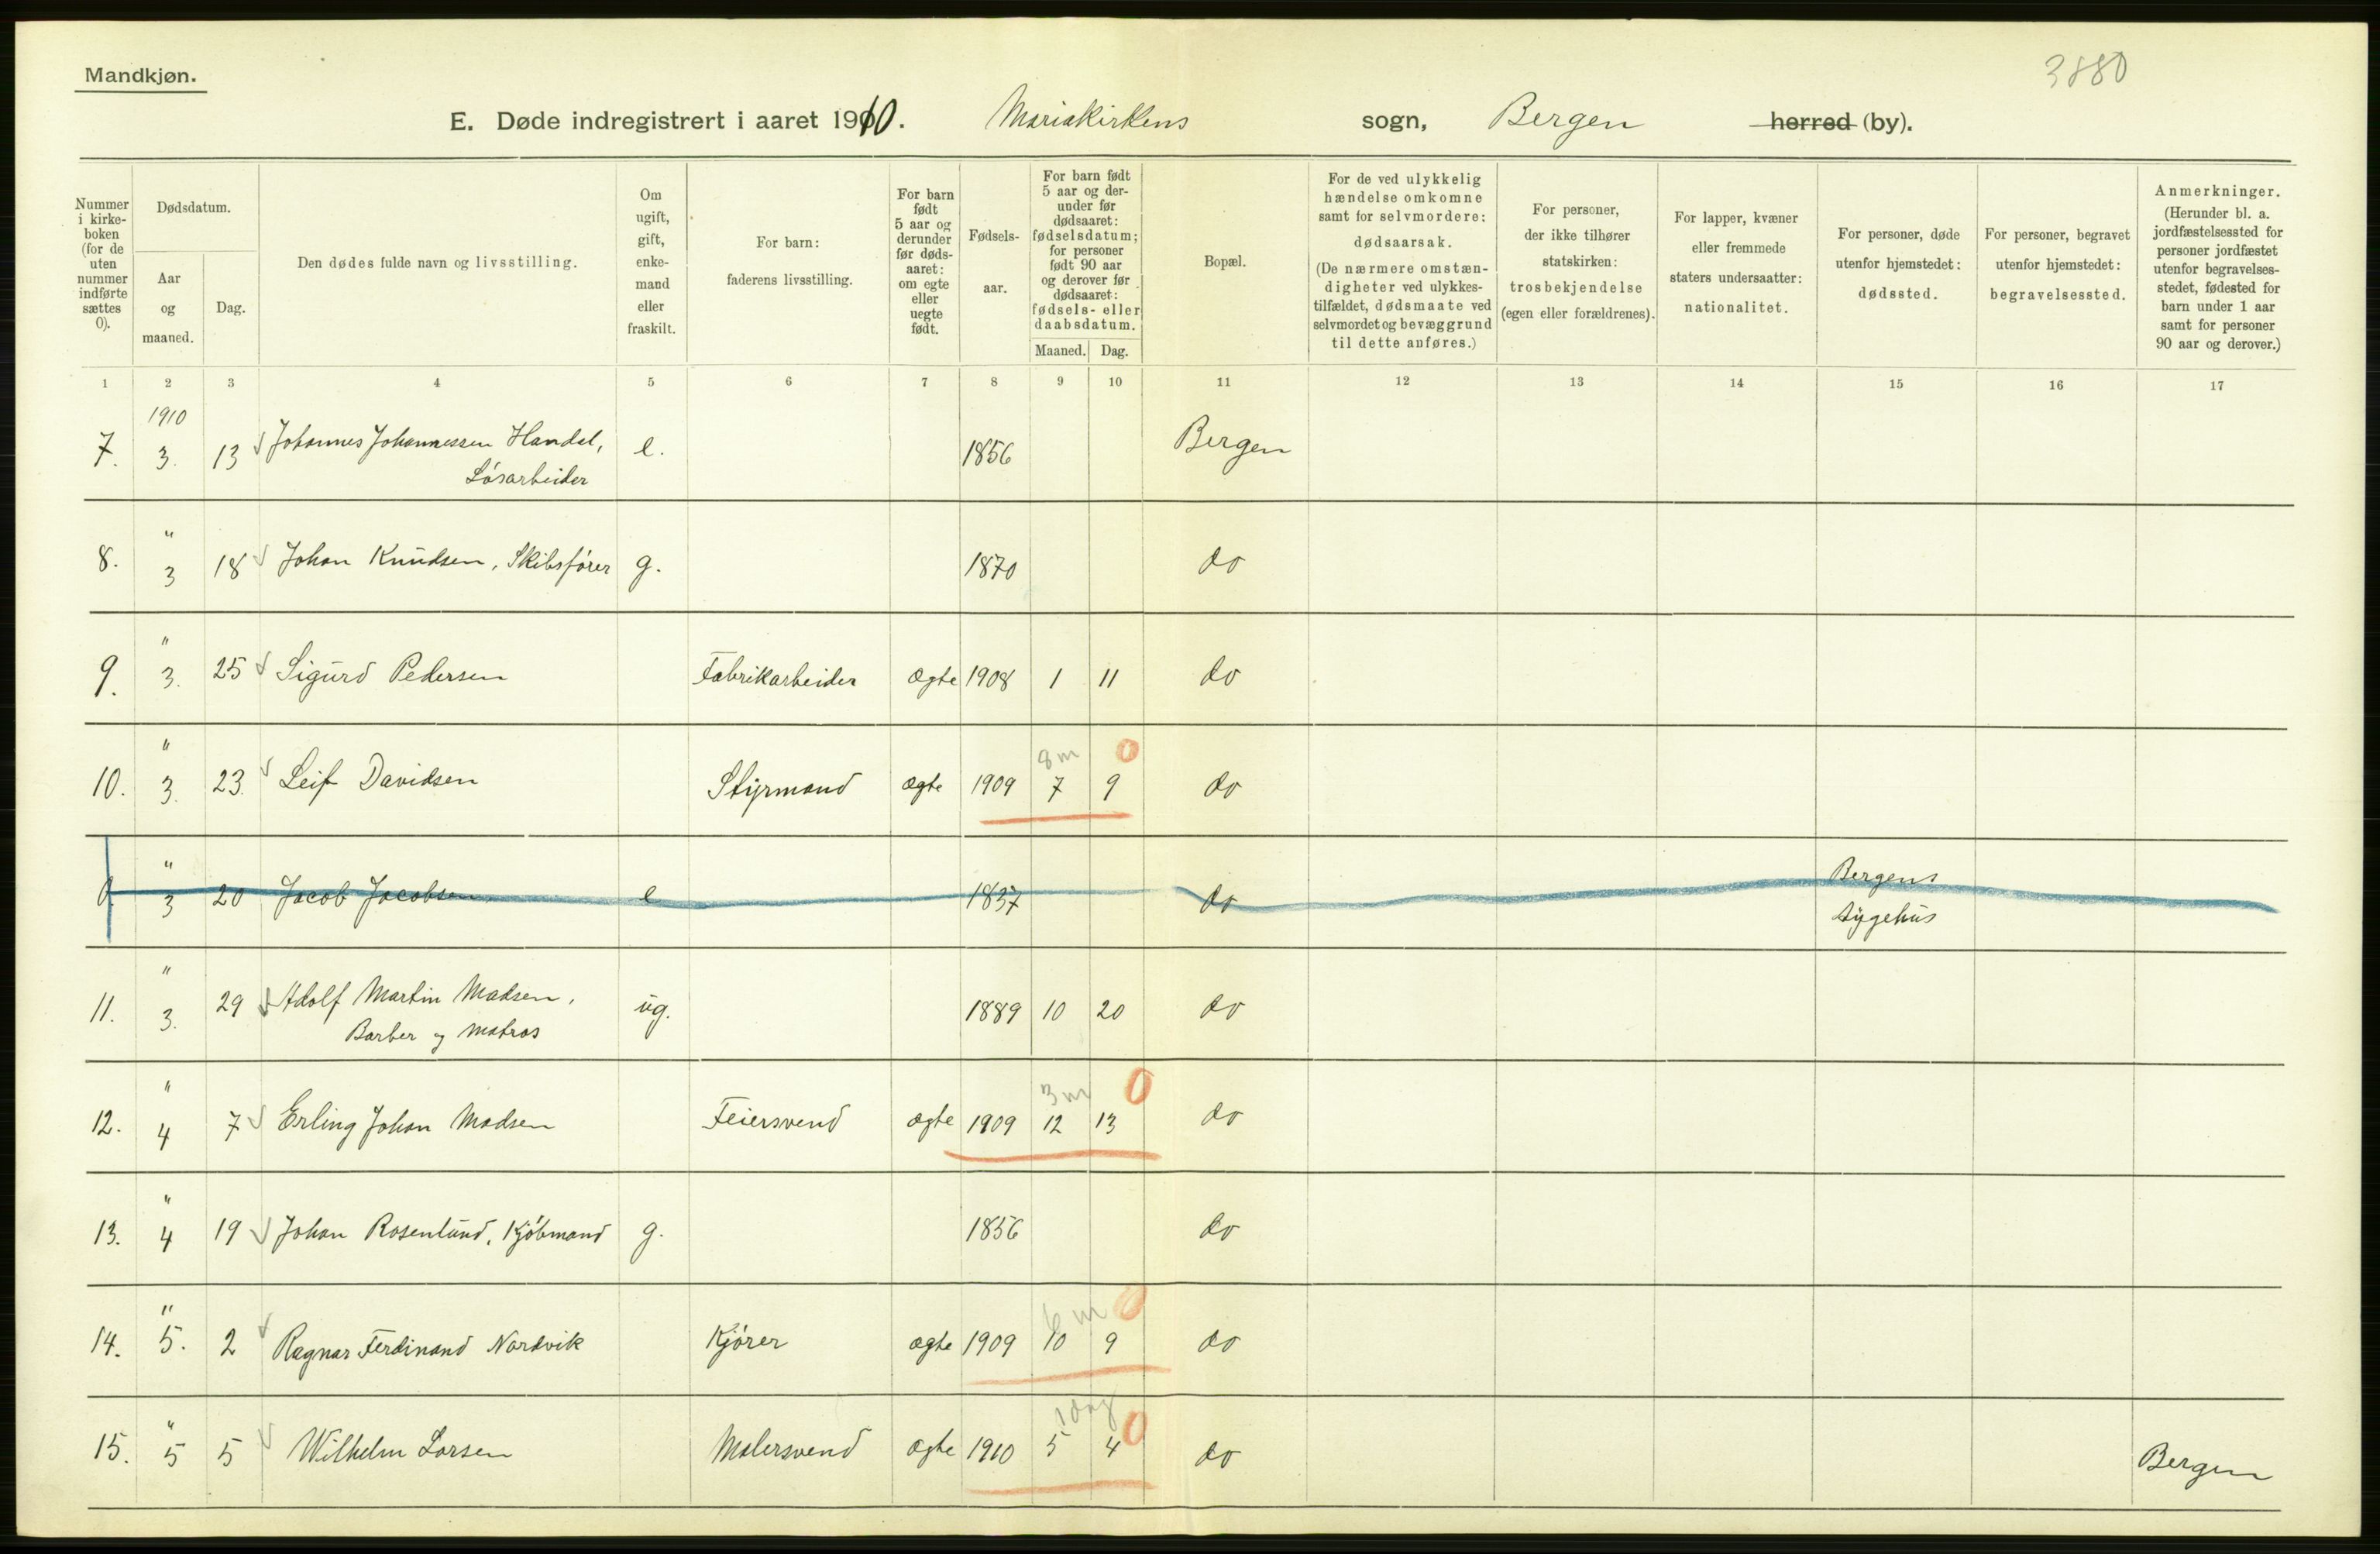 Mandkjøn.
3880
E. Døde indregistrert i aaret 1910. Mariakirkens sogn, Bergen herred (by).
Nummer i kirke- boken (for de uten nummer indførte sættes 0).
Dødsdatum.
Aar og maaned.
Dag.
Den dødes fulde navn og livsstilling.
Om ugift, gift, enke- mand eller fraskilt.
For barn: faderens livsstilling.
For barn født 5 aar og derunder før døds- aaret: om egte eller uegte født.
Fødsels- aar.
For barn født 5 aar og der- under før dødsaaret: fødselsdatum; for personer født 90 aar og derover før dødsaaret: fødsels- eller daabsdatum.
Maaned. Dag.
Bopæl.
For de ved ulykkelig hændelse omkomne samt for selvmordere: dødsaarsak. (De nærmere omstæn- digheter ved ulykkes- tilfældet, dødsmaate ved selvmordet og bevæggrund til dette anføres.)
For personer, der ikke tilhører statskirken: trosbekjendelse (egen eller forældrenes).
For lapper, kvæner eller fremmede staters undersaatter: nationalitet.
For personer, døde utenfor hjemstedet: dødssted.
For personer, begravet utenfor hjemstedet: begravelsessted.
Anmerkninger. (Herunder bl. a. jordfæstelsessted for personer jordfæstet utenfor begravelses- stedet, fødested for barn under 1 aar samt for personer 90 aar og derover.)
1 2 3 4 5 6 7 8 9 10 11 12 13 14 15 16 17
1910
7. 3. 13 Johannes Johannessen Handal, e. 1856 Bergen
Løsarbeider
"
8. 3 18 Johan Knudsen, Skibsfører g. 1870 do
"
9. 3. 25 Sigurd Pedersen Fabrikarbeider ægte 1908 1 11 do
" 8 m 0
10. 3. 23. Leif Davidsen Styrmand ægte 1909 7 9 do
" Bergens
0 3 20 Jacob Jacobsen e 1837 do
sygehus
"
11. 3. 29 Adolf Martin Madsen, ug. 1889 10 20 do
Barber og Matros
" 3 m 0
12. 4 7 Erling Johan Madsen Feiersvend ægte 1909 12 13 do
"
13. 4 19 Johan Rosenlund, Kjøbmand g. 1856 do
" 6 m 0
14. 5. 2 Ragnar Ferdinand Nordvik Kjører ægte 1909 10 9 do
" 1 dag 0
15. 5 5 Wilhelm Larsen Malersvend ægte 1910 5 4 do Bergen